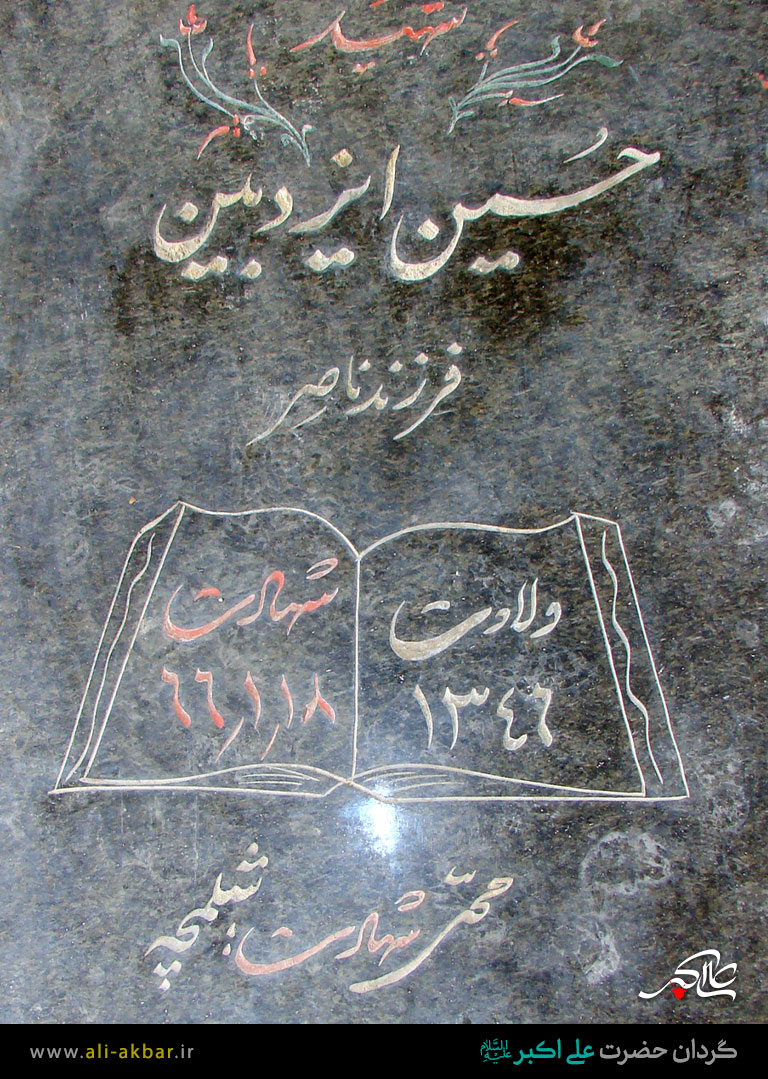 شهید
حسین ایزدبین
فرزند ناصر
ولادت
۱۳٤٦
شهادت
٦٦٫۱٫۱۸
محل شهادت: شلمچه
علی اکبر
گردان حضرت علی اکبر علیه السلام
www.ali-akbar.ir